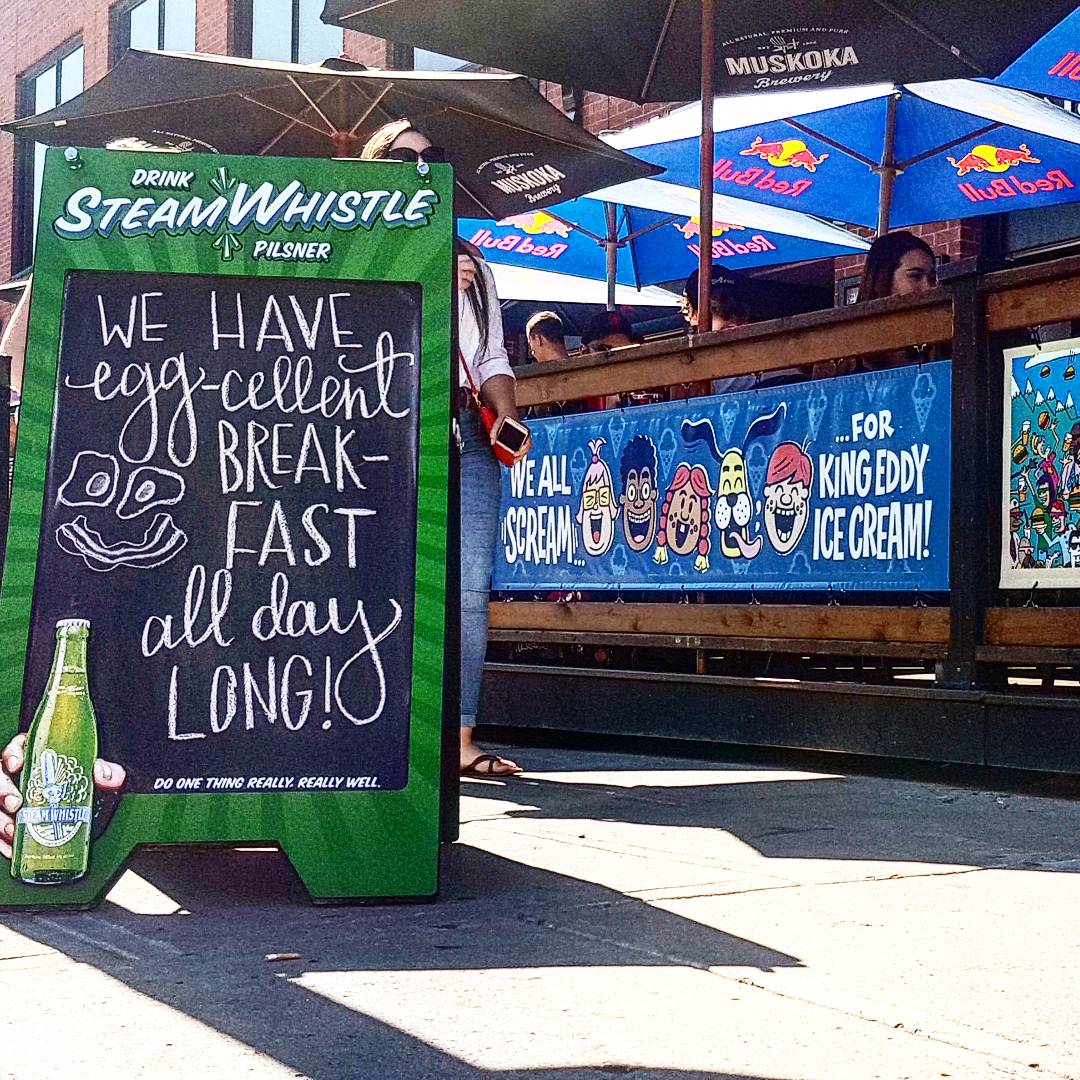 ALL NATURAL, PREMIUM AND PURE
MUSKOKA
Brewery
MUSKOKA
Brewery
Red Bull
Red Bull
Red Bull
Red Bull
DRINK
STEAM WHISTLE
PILSNER
WE HAVE
egg-cellent
BREAK-
FAST
all day
LONG!
DO ONE THING REALLY. REALLY WELL.
STEAM WHISTLE
WE ALL
SCREAM...
...FOR
KING EDDY
ICE CREAM!